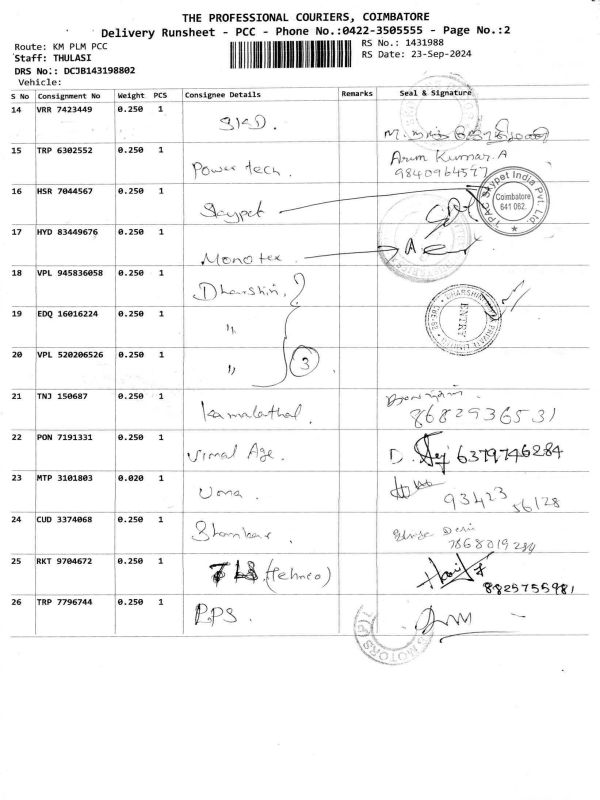 THE PROFESSIONAL COURIERS, COIMBATORE
Delivery Runsheet - PCC - Phone No.:0422-3505555 - Page No.:2
Route: KM PLM PCC
RS No.: 1431988
Staff: THULASI
RS Date: 23-Sep-2024
DRS No.: DCJB143198802
Vehicle:
S No Consignment No Weight PCS Consignee Details Remarks Seal & Signature
14 VRR 7423449 0.250 1
15 TRP 6302552 0.250 1 Power tech. Arun Kumar. A
9840964577
16 HSR 7044567 0.250 1 Skypet
Skypet India Pvt. Ltd.
Coimbatore
641 062.
17 HYD 83449676 0.250 1 Monotex.
18 VPL 945836058 0.250 1 Dharshini
19 EDQ 16016224 0.250 1 "
ENTRY
20 VPL 520206526 0.250 1 " 3
21 TNJ 150687 0.250 1 Kamalathal.
8682936531
22 PON 7191331 0.250 1 Vimal Age. D. 6379746284
23 MTP 3101803 0.020 1 Uma. 93423 56128
24 CUD 3374068 0.250 1 Shankar.
25 RKT 9704672 0.250 1 (Tehneo)
8825755981
26 TRP 7796744 0.250 1 P.P.S.
MOTORS